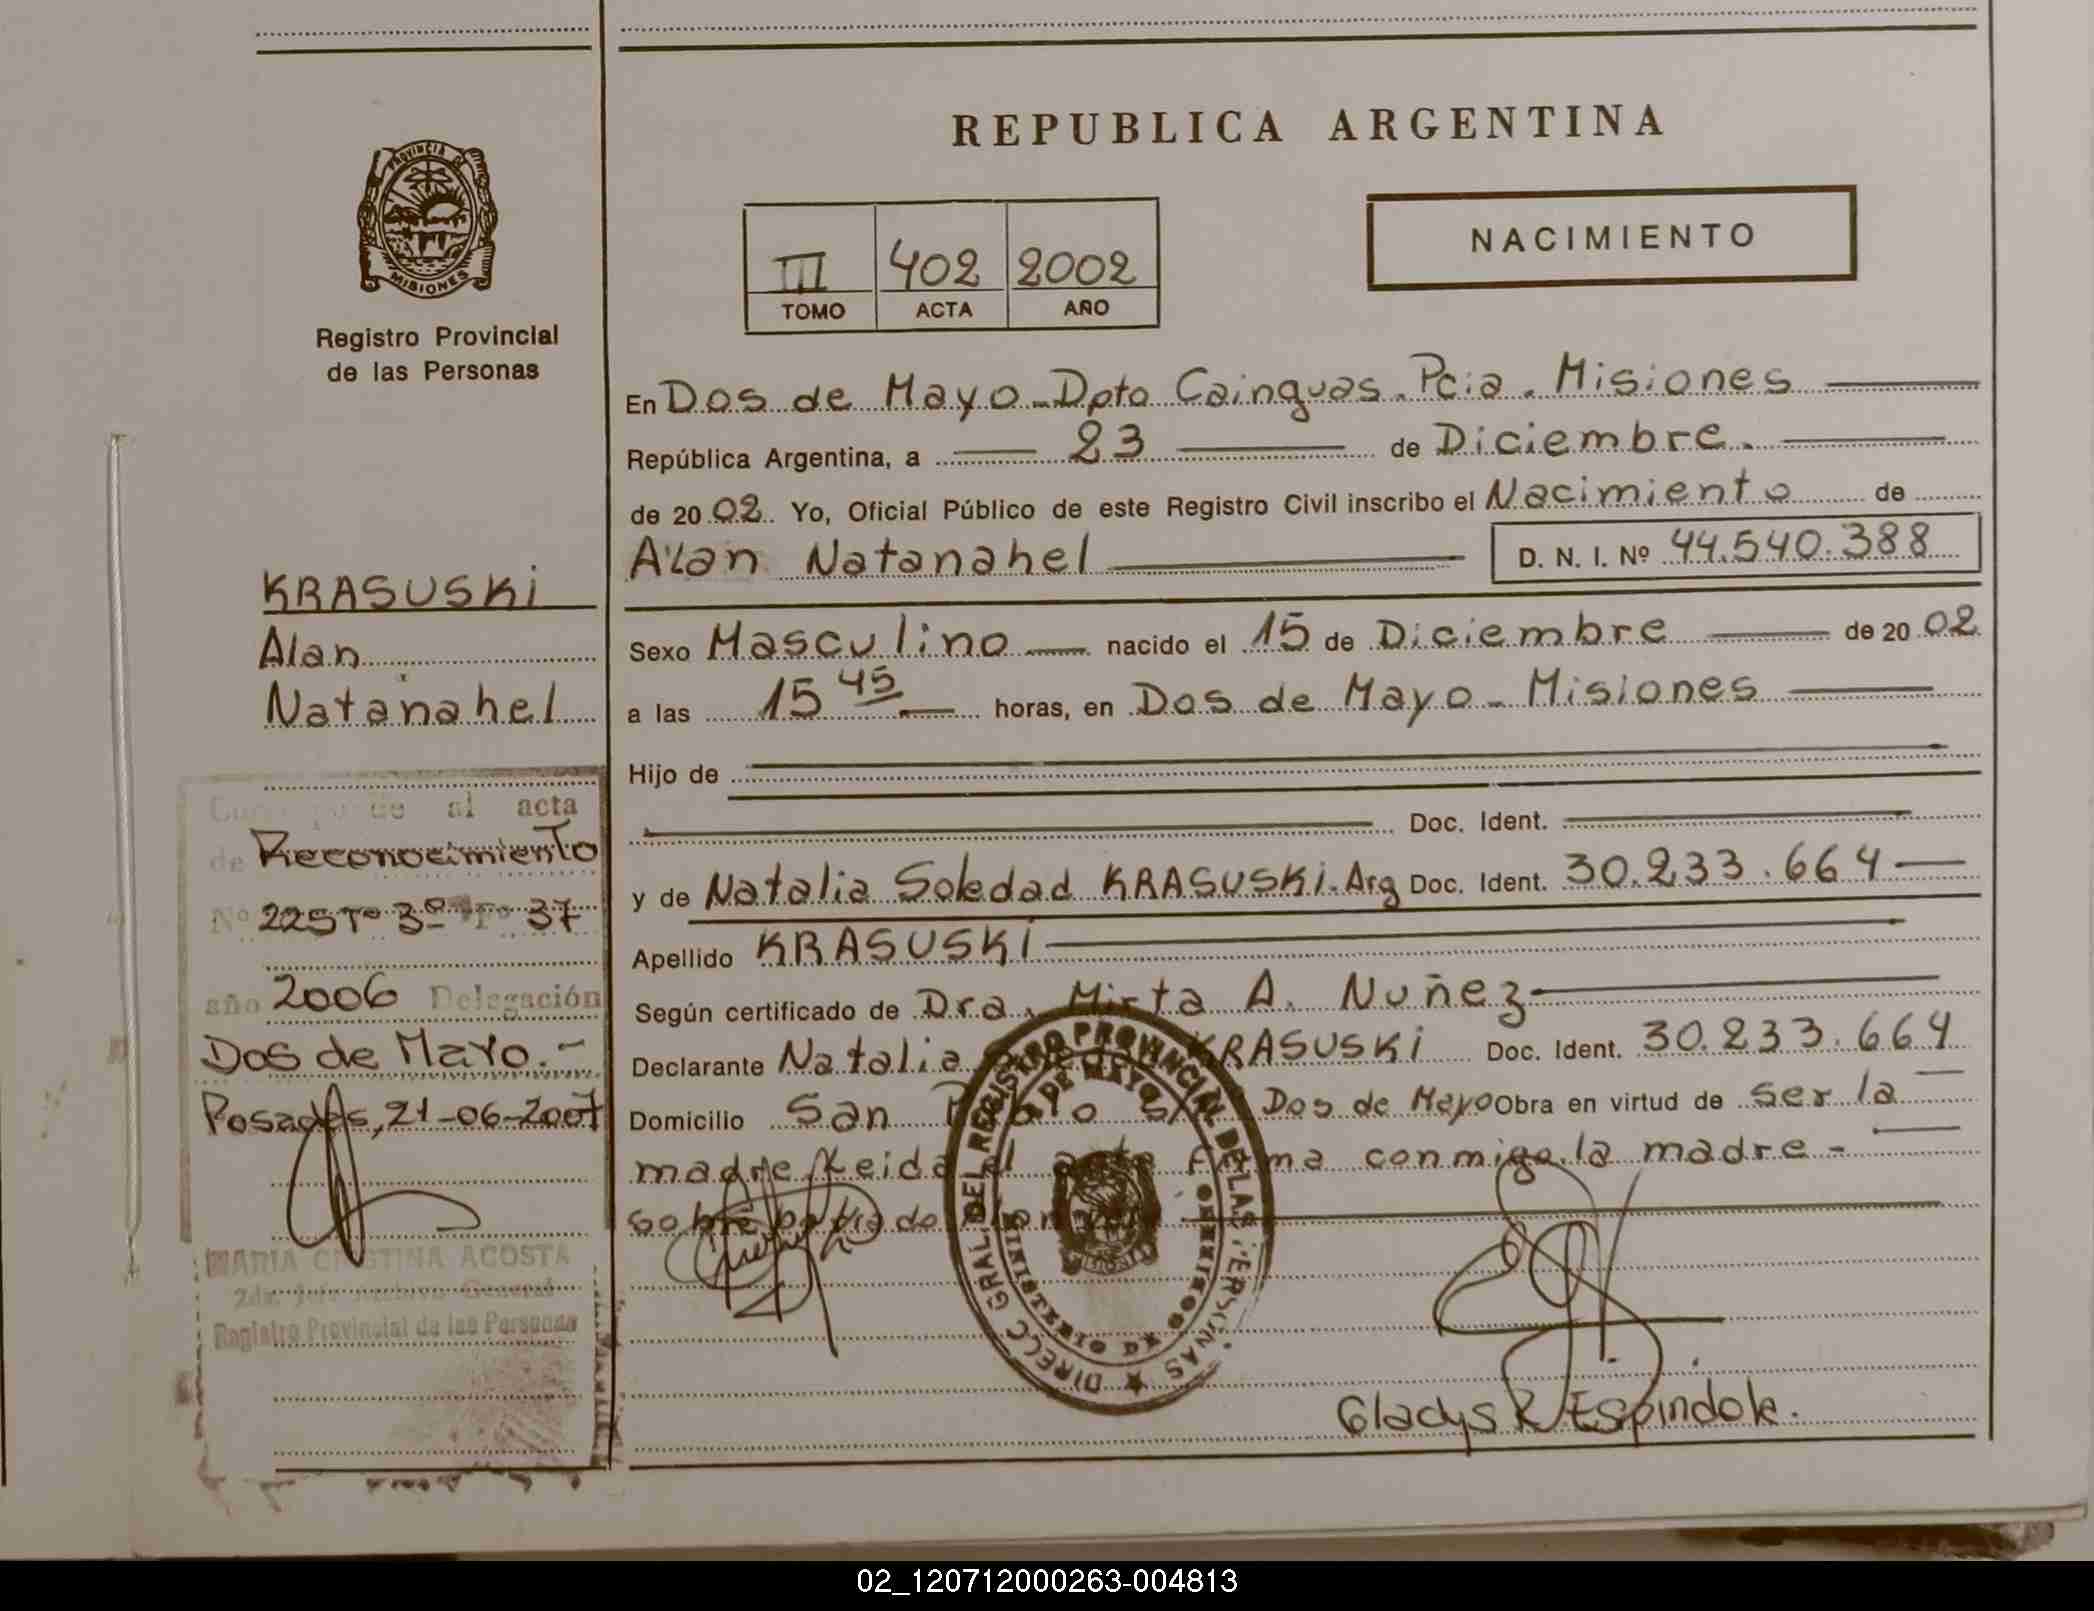 REPUBLICA ARGENTINA
PROVINCIA DE
MISIONES
Registro Provincial
de las Personas
III 402 2002
TOMO ACTA AÑO
NACIMIENTO
En Dos de Mayo - Dpto Cainguas. Pcia. Misiones
República Argentina, a 23 de Diciembre.
de 2002. Yo, Oficial Público de este Registro Civil inscribo el Nacimiento de
Alan Natanahel D. N. I. Nº 44.540.388
Sexo Masculino nacido el 15 de Diciembre de 2002
a las 15 45 horas, en Dos de Mayo - Misiones
Hijo de
Doc. Ident.
y de Natalia Soledad KRASUSKi. Arg Doc. Ident. 30.233.664
Apellido KRASUSKi
Según certificado de Dra. Mirta A. Nuñez
Declarante Natalia KRASUSKi Doc. Ident. 30.233.664
Domicilio San Dos de Mayo Obra en virtud de ser la
madre Leida el acta Firma conmigo la madre -
Gladys R Espindola.
DIRECC GRAL. DEL REGISTRO PROVINCIAL DE LAS PERSONAS
2 DE MAYO
MINISTERIO DE GOBIERNO
KRASUSKi
Alan
Natanahel
Corresponde al acta
de Reconocimiento
Nº 225 Tº 3º Fº 37
año 2006 Delegación
Dos de Mayo.-
Posadas, 21-06-2007
MARIA CRISTINA ACOSTA
2da. Jefe Archivo General
Registro Provincial de las Personas
02_120712000263-004813